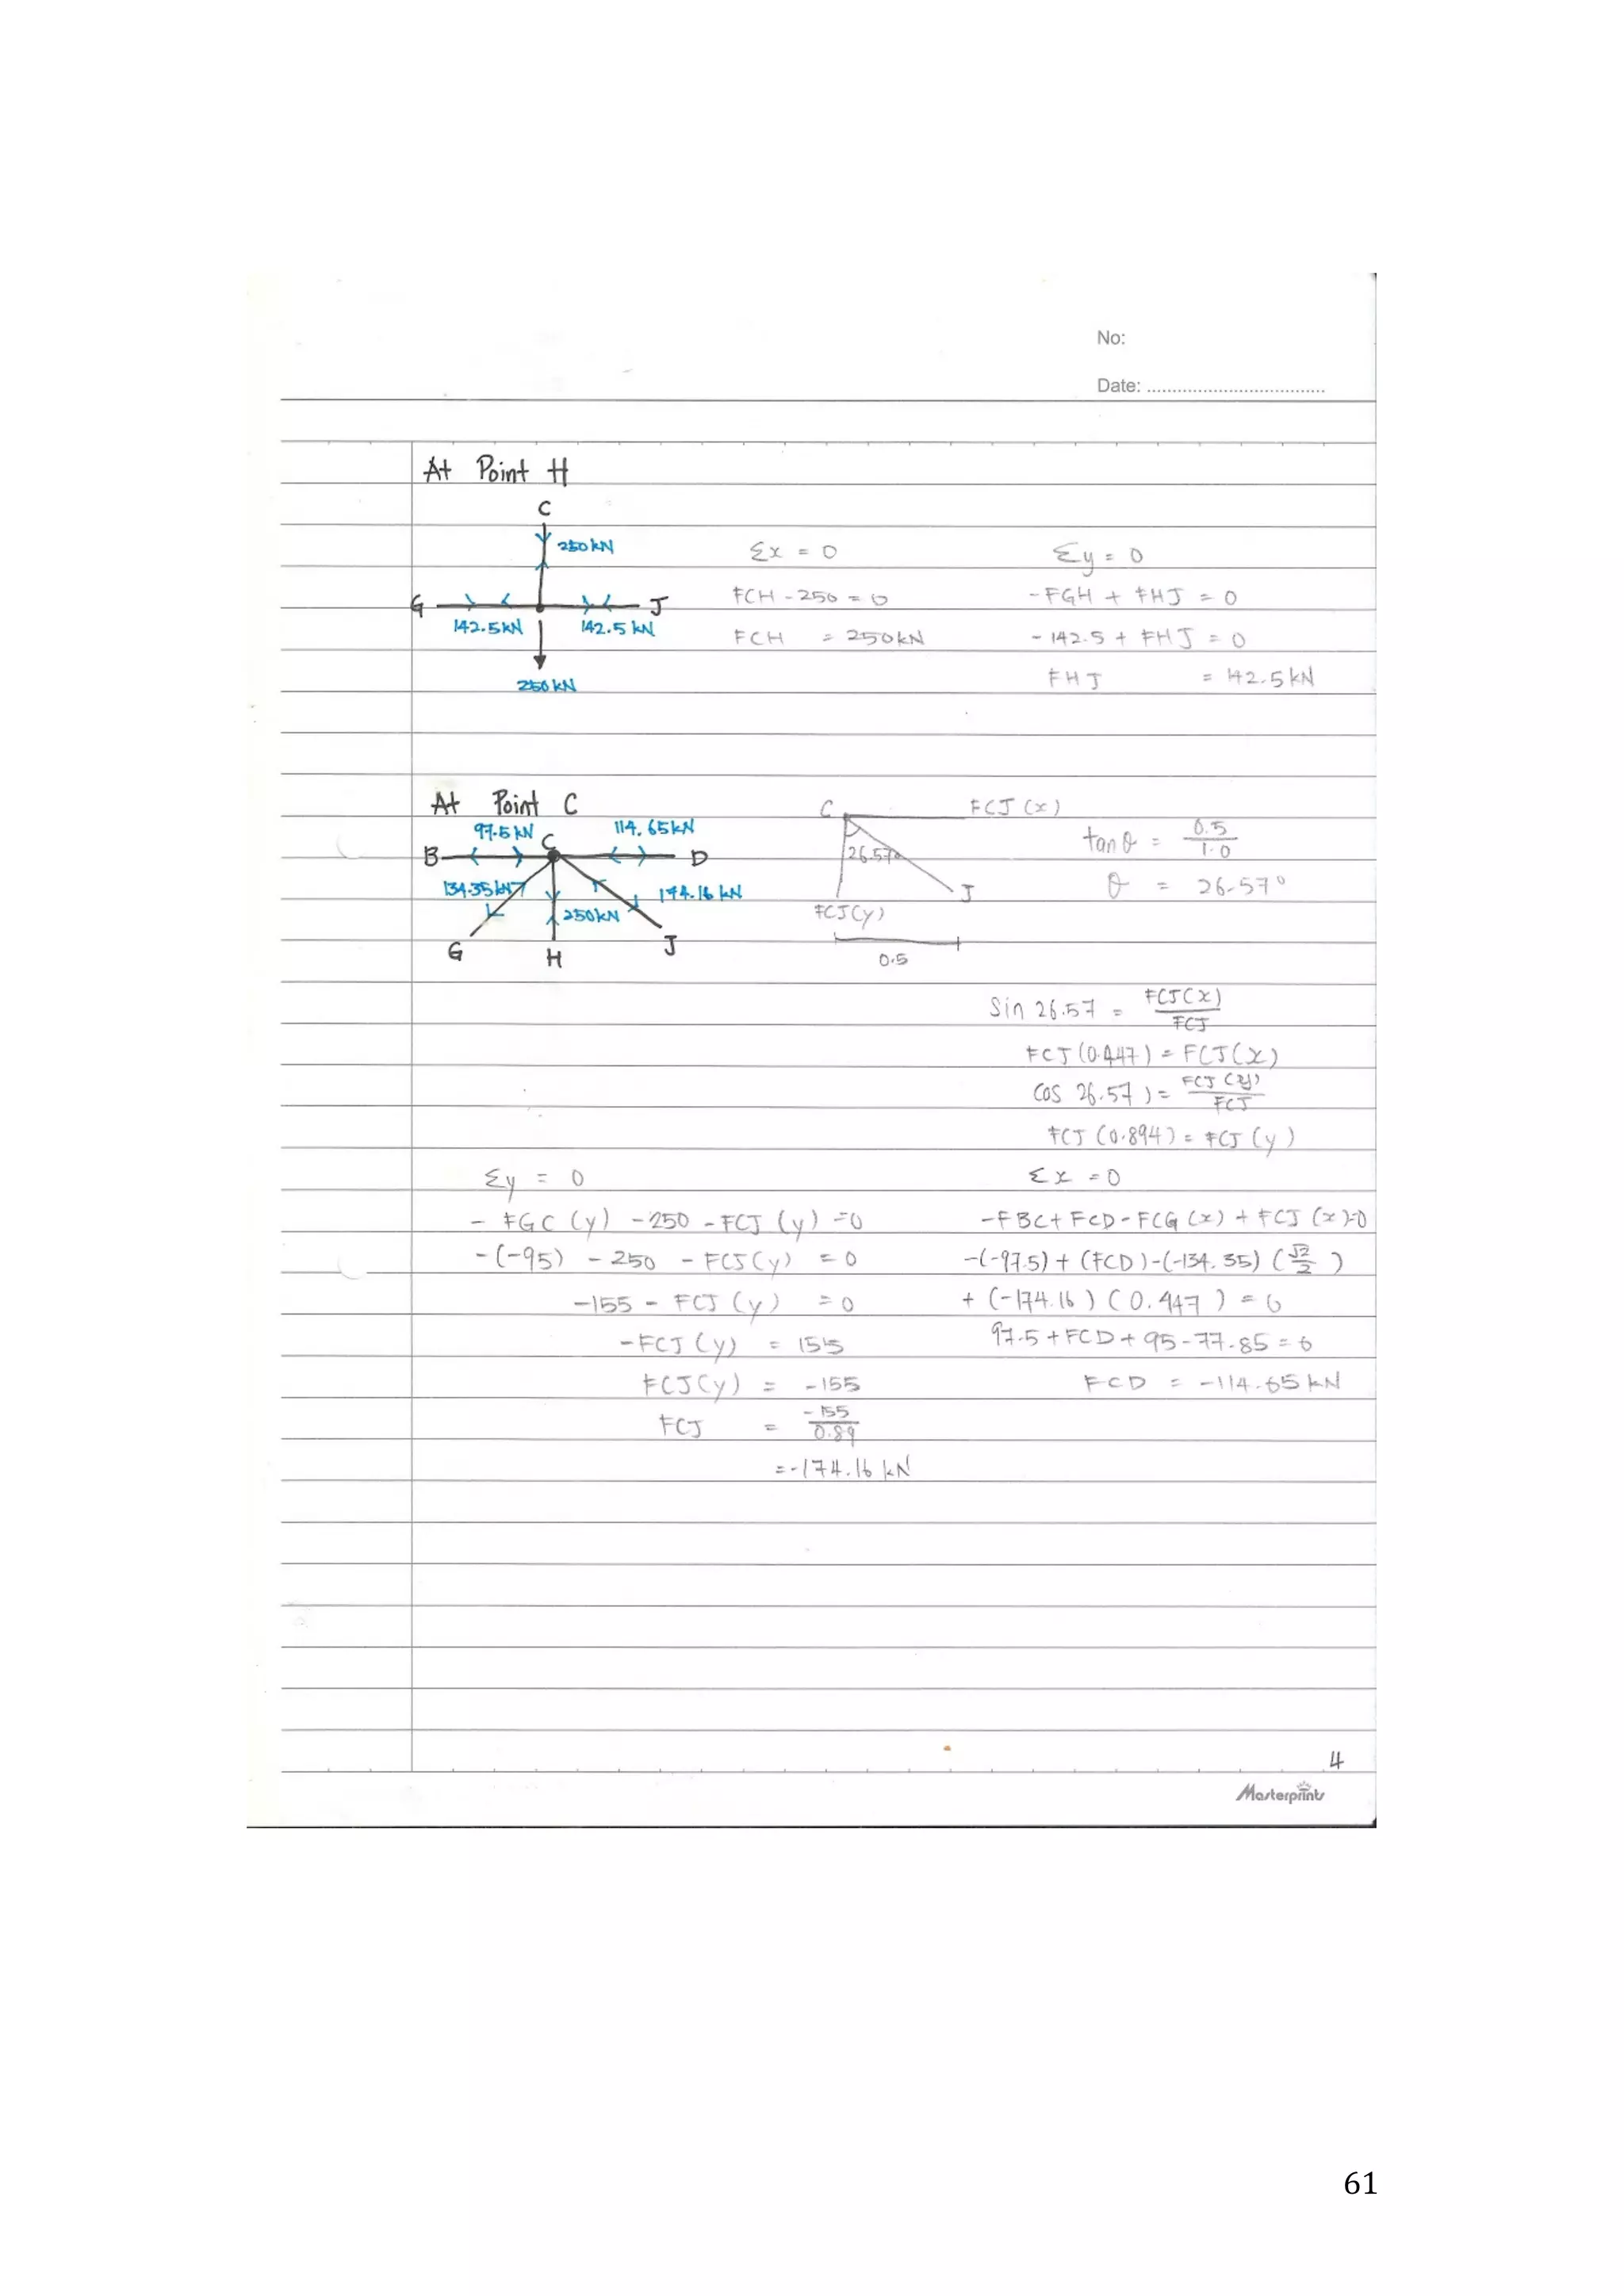 No:
Date: ..................................
At Point H
C
250kN
G
J
142.5kN
142.5 kN
250 kN
Σx = 0
FCH - 250 = 0
FCH = 250kN
Σy = 0
-FGH + FHJ = 0
- 142.5 + FHJ = 0
FHJ = 142.5kN
At Point C
97.5 kN
C
114.65kN
B
D
134.35kN
174.16 kN
250kN
G
H
J
C
FCJ (x)
26.57°
J
FCJ(y)
0.5
tanθ = 0.5/1.0
θ = 26.57°
Sin 26.57 = FCJ(x)/FCJ
FCJ (0.447) = FCJ(x)
Cos 26.57 ) = FCJ (y)/FCJ
FCJ (0.894) = FCJ (y)
Σy = 0
- FGC (y) - 250 - FCJ (y) = 0
- (-95) - 250 - FCJ(y) = 0
-155 - FCJ (y) = 0
-FCJ (y) = 155
FCJ(y) = -155
FCJ = -155/0.89
= -174.16 kN
Σx = 0
-FBC + FCD - FCG (x) + FCJ (x)=0
-(-97.5) + (FCD) -(-134.35) (√2/2)
+ (-174.16) (0.447) = 0
97.5 + FCD + 95 - 77.85 = 0
FCD = -114.65 kN
4
Masterprints
61